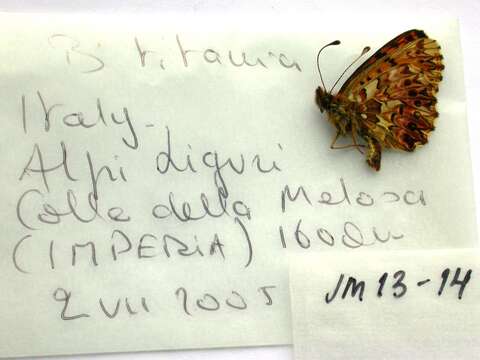 B. titania
Italy.
Alpi Liguri
Colle della Melosa
(IMPERIA) 1600m
2 VII 2005
JM 13-14